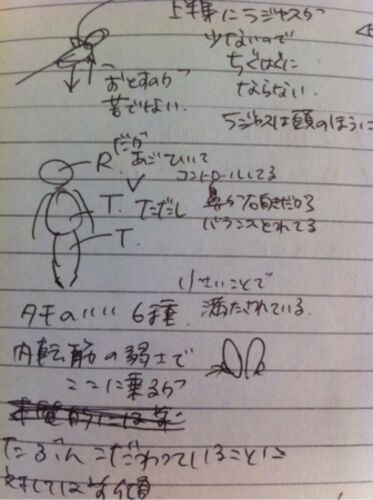 上半身にラジャスが
少ないので
ちぐはぐに
ならない
おとすのが
苦ではない
ラジャスは頭のほうに
だが
R. あごひいて
コントロールしてる
T. ただし 鼻が右向きだから
バランスとれてる
T.
小さいことで
タモのいい 6種. 満たされている
内転筋の弱さで
ここに乗るから
本質的には
たぶん こだわっていることに
対しては